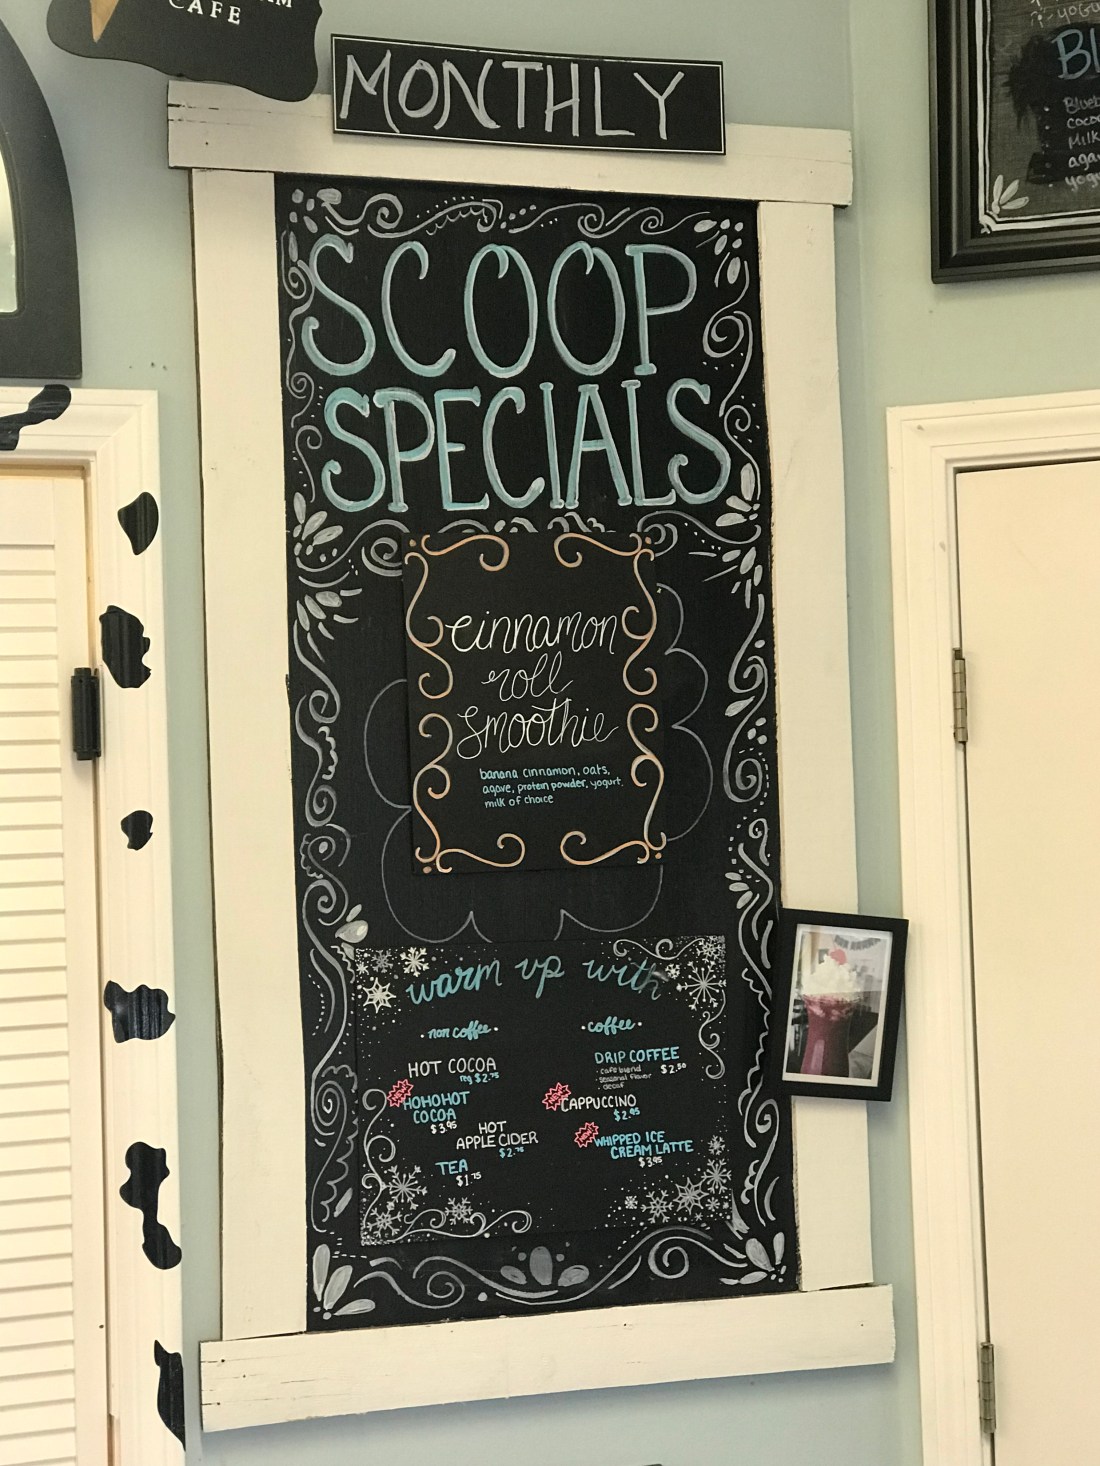 CAFE
MONTHLY
SCOOP
SPECIALS
cinnamon
roll
smoothie
banana cinnamon, oats,
agave, protein powder, yogurt,
milk of choice
warm up with
• non coffee •
HOT COCOA
reg $2.75
NEW!
HOHOHOT
COCOA
$3.95
HOT
APPLE CIDER
$2.75
TEA
$1.75
• coffee •
DRIP COFFEE
• cafe blend
• seasonal flavor
• decaf
$2.50
NEW!
CAPPUCCINO
$2.95
NEW!
WHIPPED ICE
CREAM LATTE
$3.95
Bl
Milk